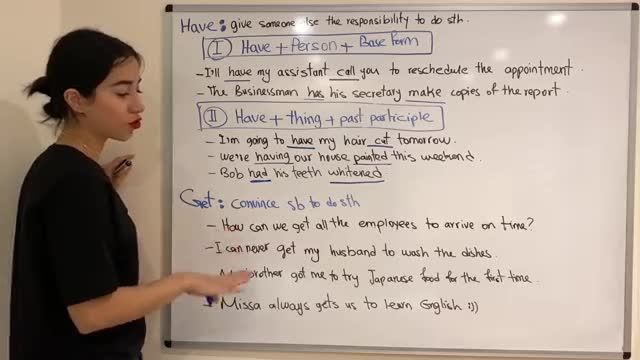 Have: give someone else the responsibility to do sth.
I Have + Person + Base form
- I'll have my assistant call you to reschedule the appointment.
- The Businessman has his secretary make copies of the report.
II Have + thing + past participle
- I'm going to have my hair cut tomorrow.
- We're having our house painted this weekend.
- Bob had his teeth whitened
Get: convince sb to do sth
- How can we get all the employees to arrive on time?
- I can never get my husband to wash the dishes.
got me to try Japanese food for the first time.
- Missa always gets us to learn English :))